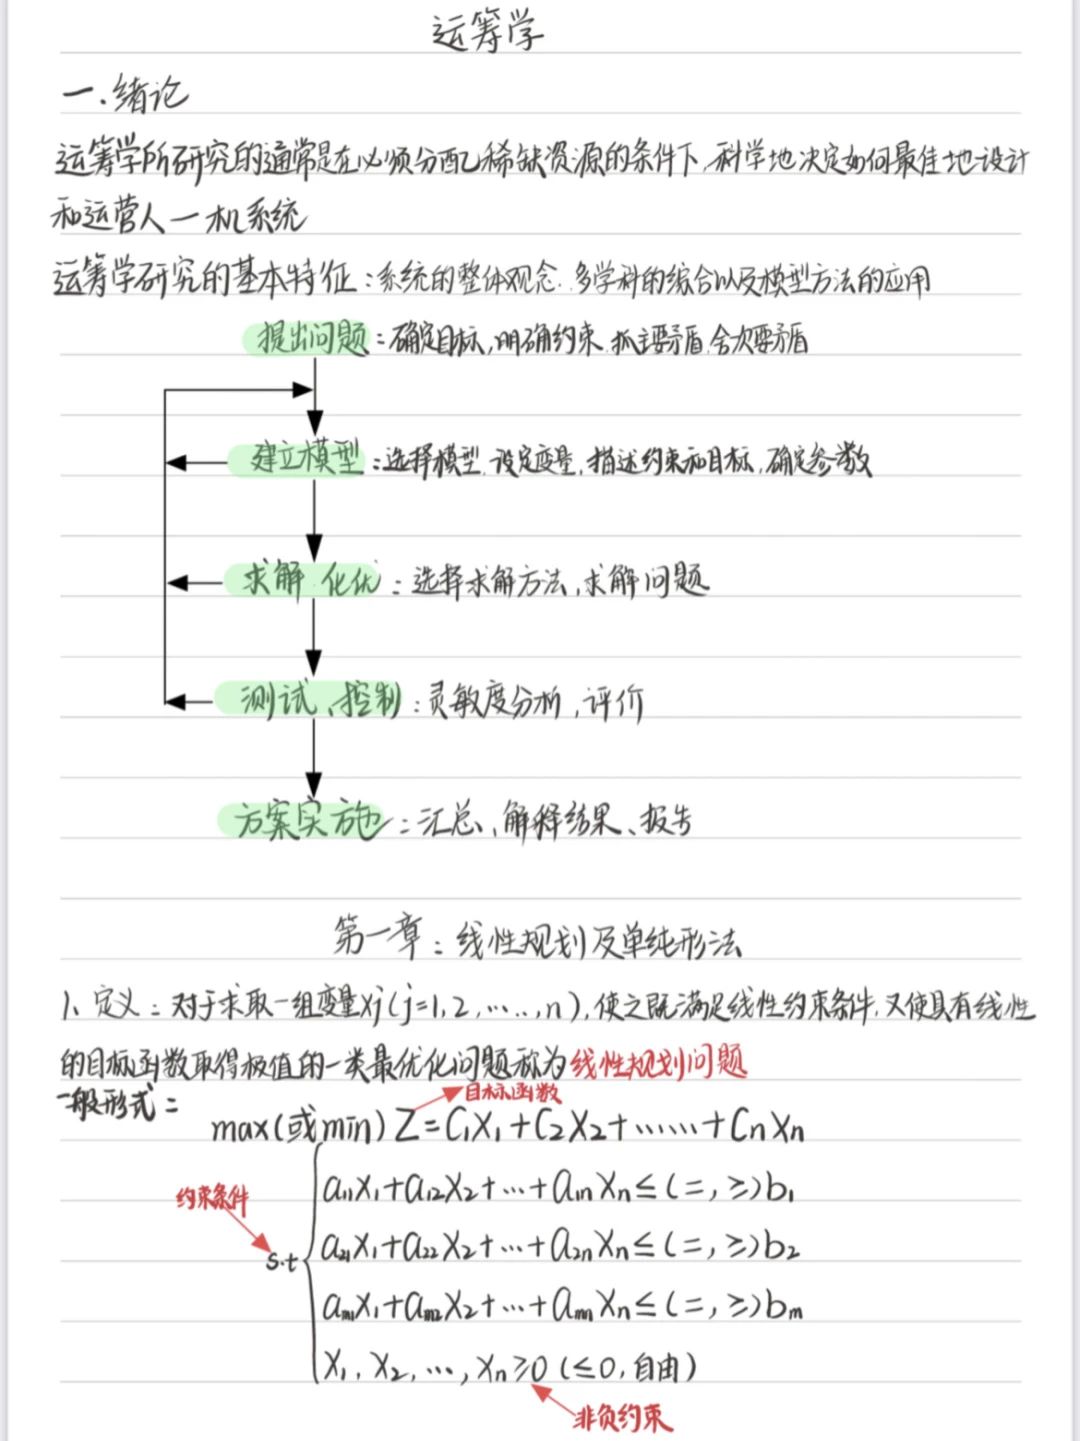 运筹学
一.绪论
运筹学所研究的通常是在必须分配稀缺资源的条件下,科学地决定如何最佳地设计
和运营人一机系统
运筹学研究的基本特征:系统的整体观念.多学科的综合以及模型方法的应用
提出问题:确定目标,明确约束.抓主要矛盾.舍次要矛盾
建立模型:选择模型.设定变量,描述约束和目标,确定参数
求解.化优:选择求解方法,求解问题
测试、控制:灵敏度分析,评价
方案实施:汇总、解释结果、报告
第一章:线性规划及单纯形法
1、定义:对于求取一组变量xj(j=1,2,…..,n),使之既满足线性约束条件,又使具有线性
的目标函数取得极值的一类最优化问题称为线性规划问题
一般形式:
目标函数
max(或min) Z=C₁X₁+C₂X₂+……+CnXn
约束条件
s.t
a₁₁X₁+a₁₂X₂+…+a₁nXn≤(=,≥)b₁
a₂₁X₁+a₂₂X₂+…+a₂nXn≤(=,≥)b₂
am₁X₁+am₂X₂+…+amnXn≤(=,≥)bm
X₁,X₂,…,Xn≥0(≤0,自由)
非负约束